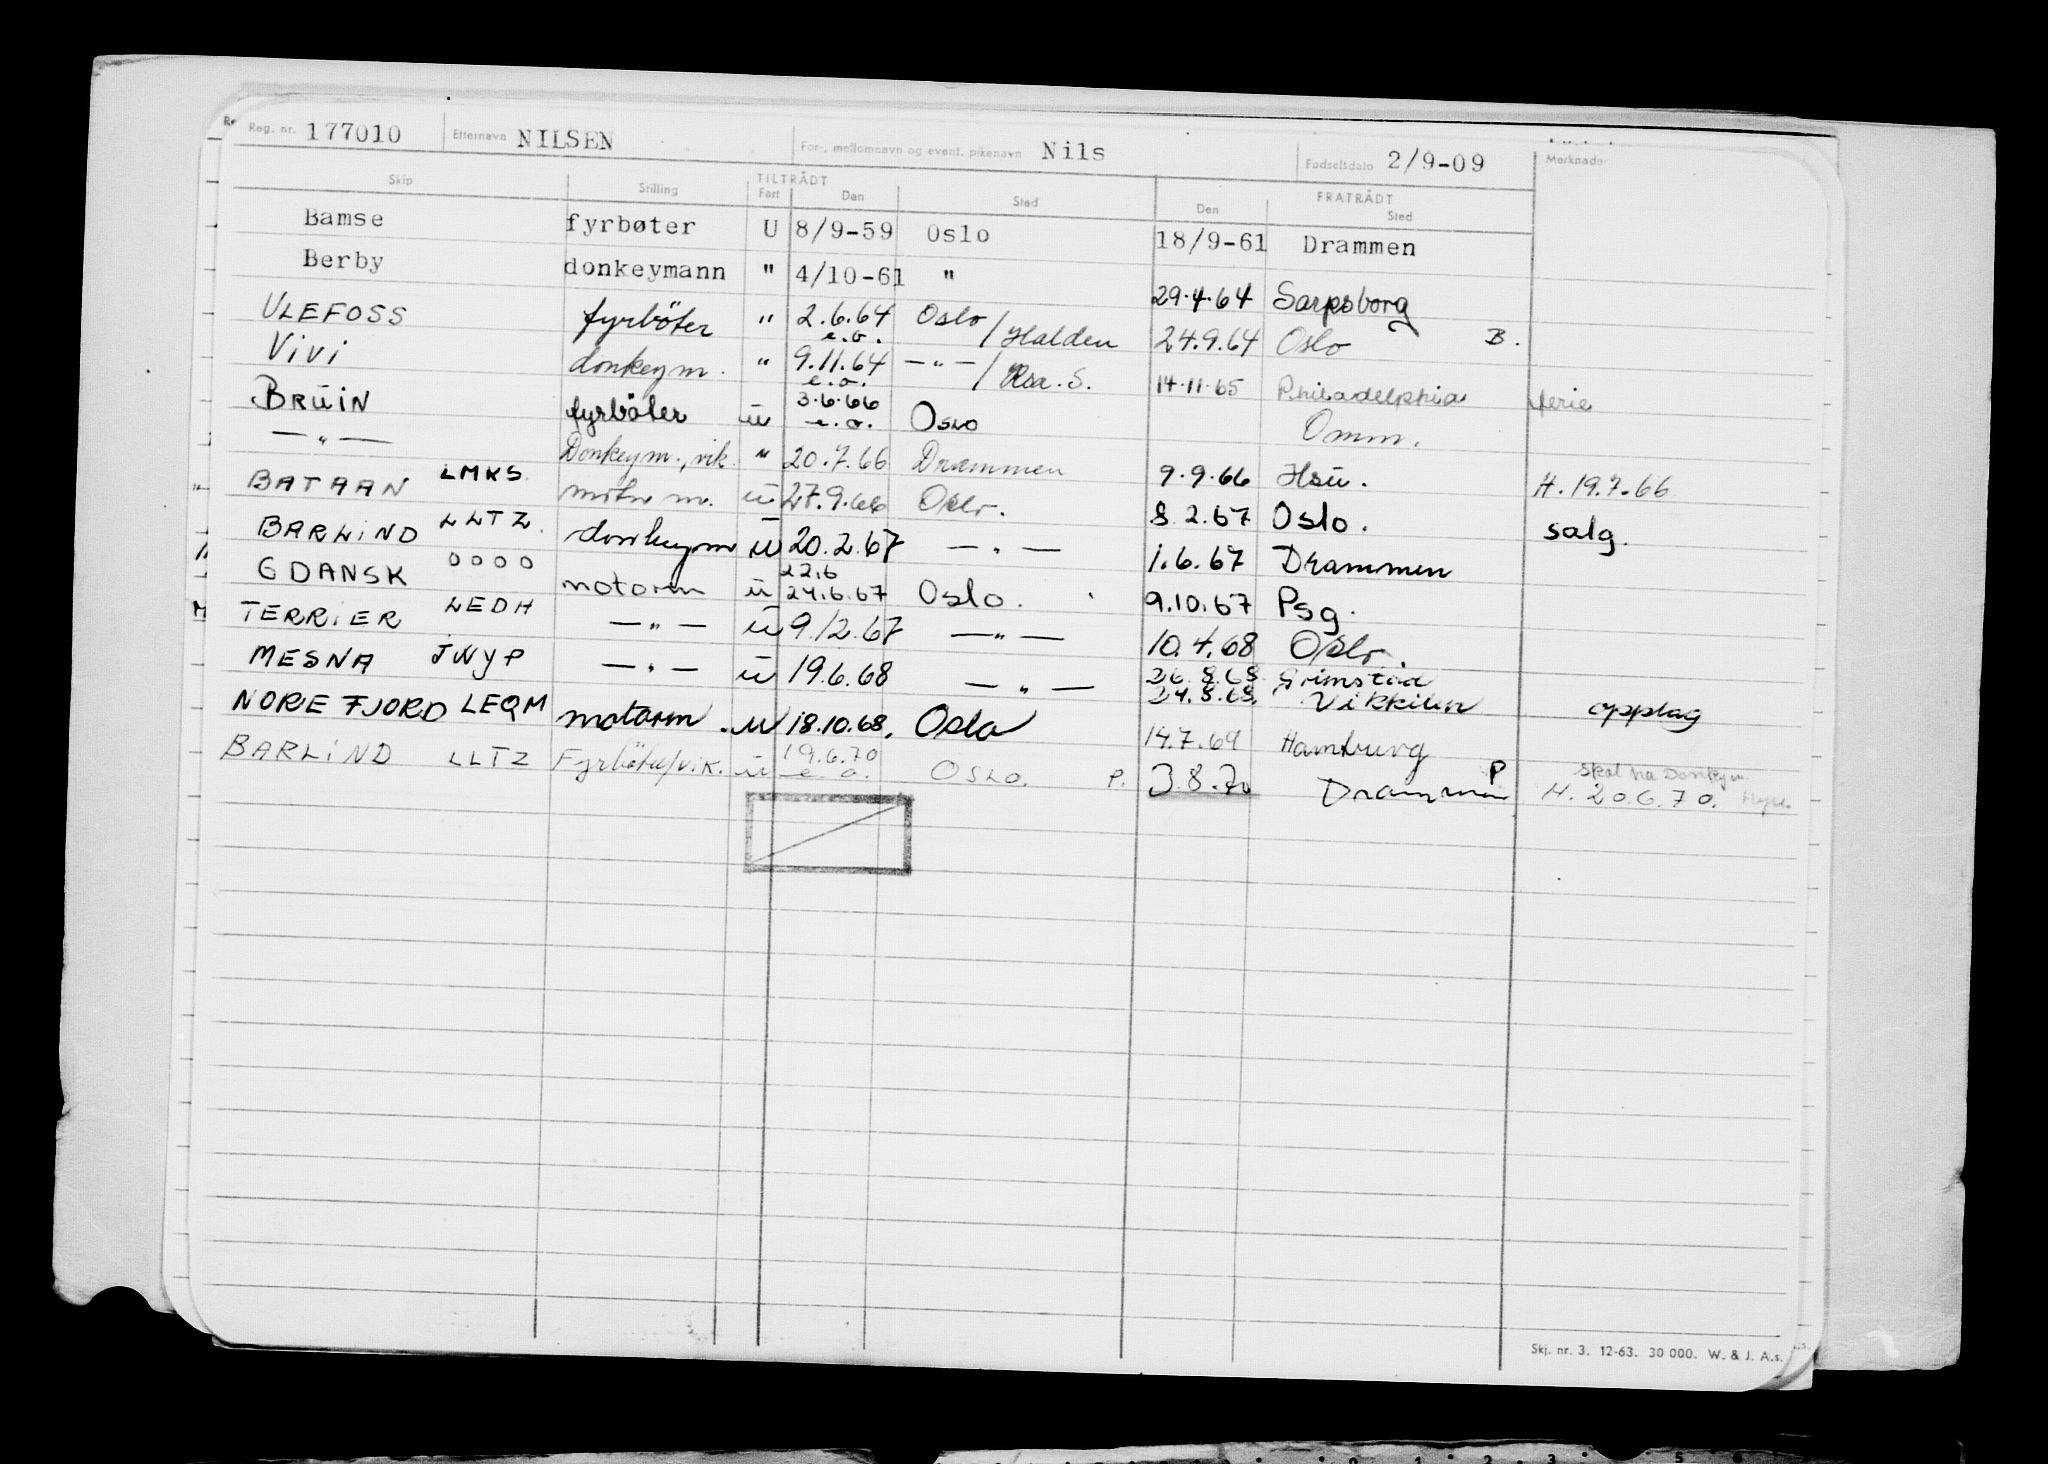 Reg. nr. 177010 Etternavn NILSEN For-, mellomnavn og event. pikenavn Nils Fødselsdato 2/9-09 Merknader
Skip Stilling TILTRÅDT Fart Den Sted FRATRÅDT Den Sted
Bamse fyrbøter U 8/9-59 Oslo 18/9-61 Drammen
Berby donkeymann " 4/10-61 " 29.4.64 Sarpsborg
ULEFOSS fyrböter " 2.6.64 e.o. Oslo/Halden 24.9.64 Oslo B.
ViVi donkeym. " 9.11.64 e.o. —"—/ 14.11.65 Philadelphia ferie
BRüiN fyrböter ü 3.6.66 e.o. Oslo Omm.
—"— Donkeym., vik. " 20.7.66 Drammen 9.9.66 Hsü. H. 19.7.66
BATAAN LMKS motorm. ü 27.9.66 Oslo. 8.2.67 Oslo. salg.
BARLiND LLTZ. donkeym ü 20.2.67 —"— 1.6.67 Drammen
GDANSK OOOO motorm ü 22.6 24.6.67 Oslo. 9.10.67 Psg.
TERRiER LEDH —"— ü 9.12.67 —"— 10.4.68 Oslo.
MESNA JWYP —"— ü 19.6.68 —"— 26.8.68 Grimstad
24.8.68. Vikkilen opplag
NOREFJORD LEQM motorm. u 18.10.68. Oslo 14.7.69 Hamburg
BARLiND LLTZ Fyrböter/vik. ü 19.6.70 e.o. OSLO. P. 3.8.70 Drammen P Skal ha Donkeym. H. 20.6.70.
Skj. nr. 3. 12-63. 30 000. W. & J. A.s.